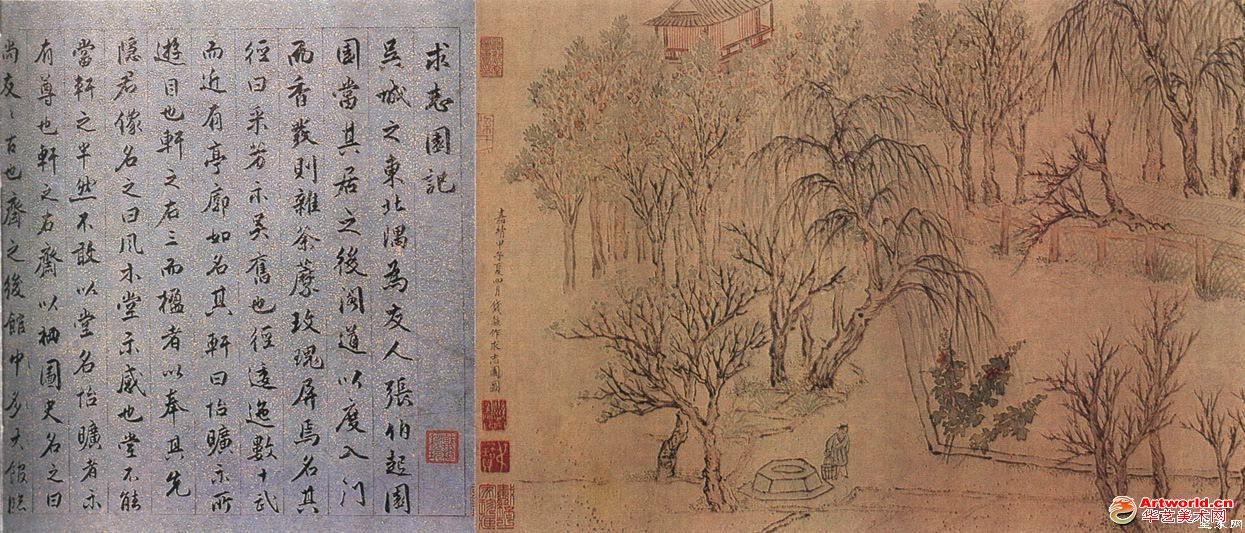 求志園記
吳城之東北隅為友人張伯起園
園當其居之後閣道以度入门
而香發則雜荼蘼玫瑰屏焉名其
徑曰采芳示美舊也徑逶迤數十武
而近有亭廓如名其軒曰怡曠示所
遊目也軒之右三而楹者以奉其先
隱君像名之曰風木堂示感也堂不能
當軒之半然不敢以堂名怡曠者示
有尊也軒之右齋以栖圖史名之曰
尚友二古也齋之後館中多大館臨
嘉靖甲子夏四月錢穀作求志園圖
Artworld.cn
华艺美术网